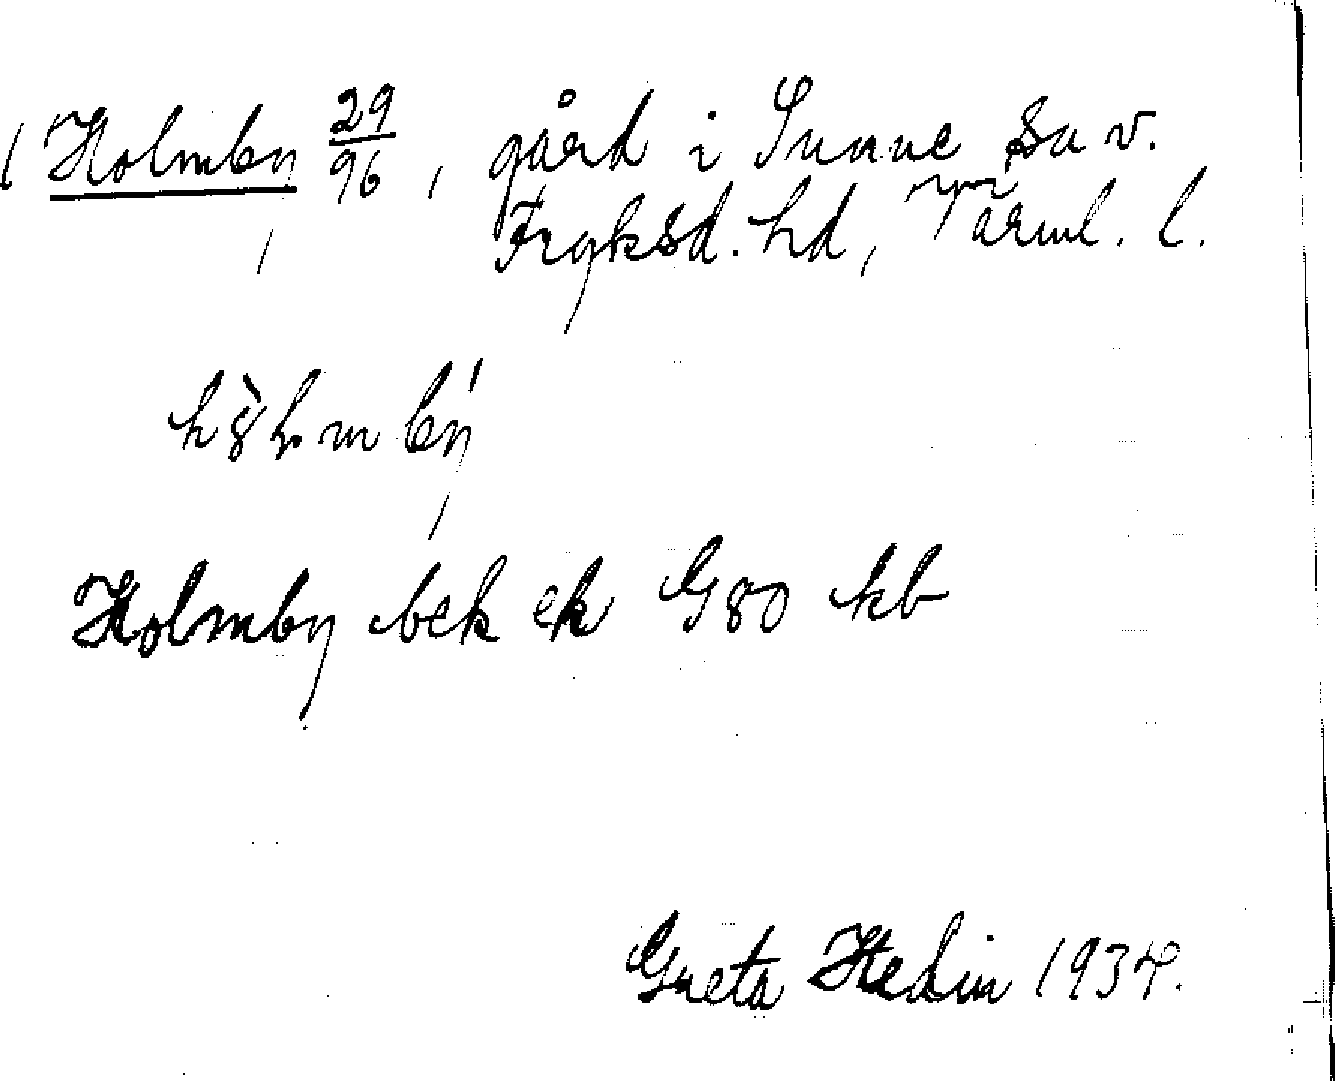 Holmby 29/96, gård i Sunne sn v.
Fryksd. hd, Värml. l.
Holmby bek ek G 80 kb
Greta Hedin 1934.